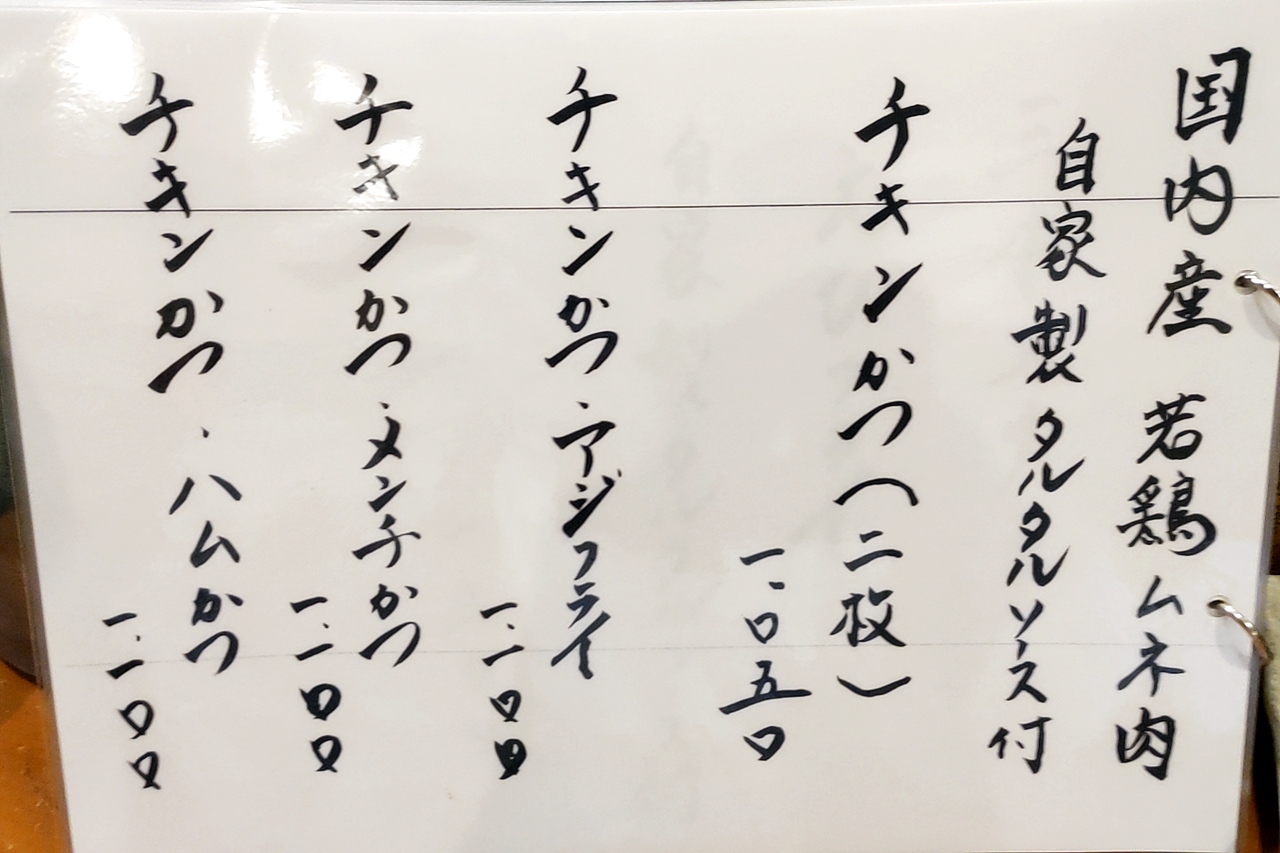 国内産 若鶏ムネ肉
自家製タルタルソース付
チキンかつ（二枚）
一、〇五〇
チキンかつ・アジフライ
一、一〇〇
チキンかつ・メンチかつ
一、一〇〇
チキンかつ・ハムかつ
一、一〇〇